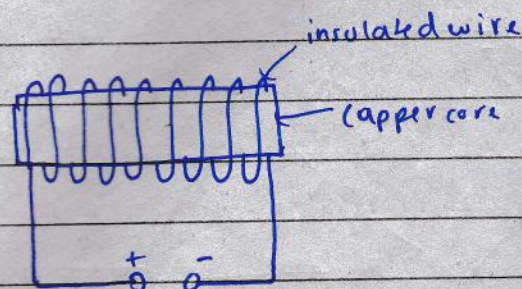 insulated wire
Capper core
+ -